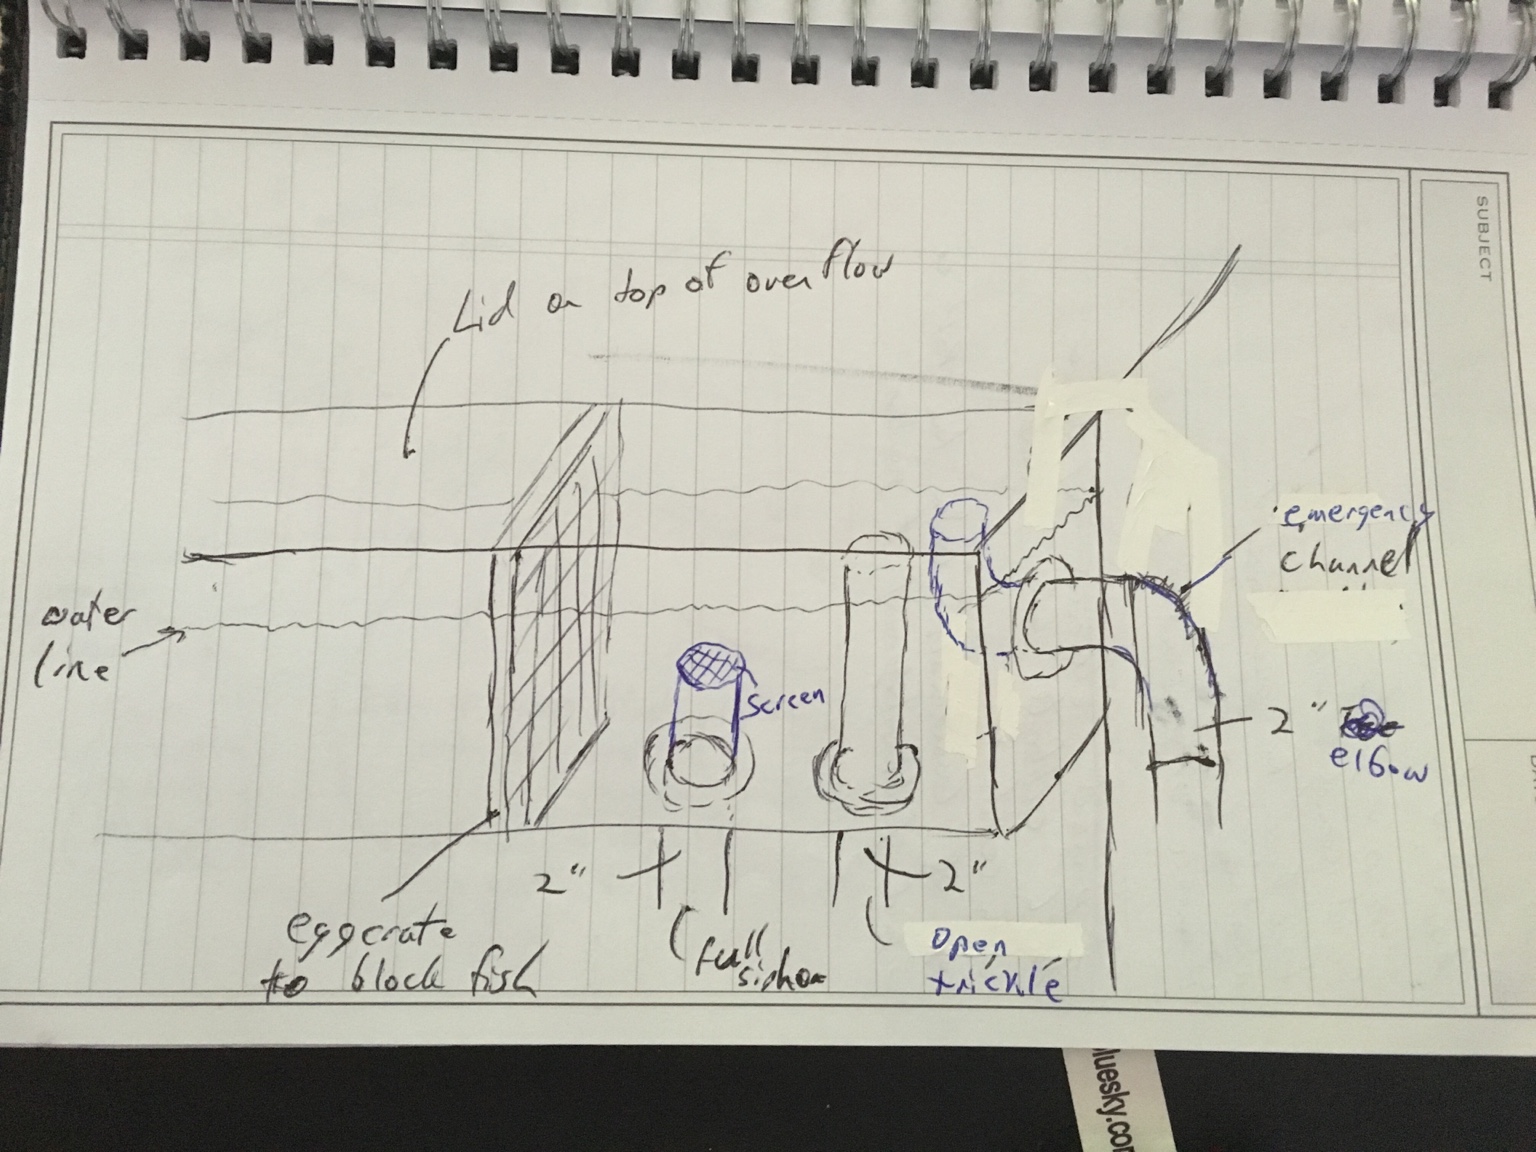 SUBJECT
Lid on top of overflow
emergency
channel
water
line
screen
2"
elbow
2"
2"
eggcrate
to block fish
full
siphon
open
trickle
luesky.co